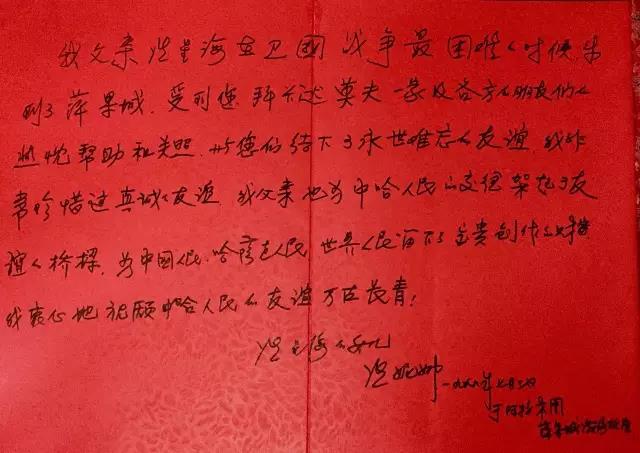 我父亲冼星海在卫國战争最困难的时候来
到了苹果城，受到您 拜卡达莫夫一家及各方的朋友们的
热忱帮助和关照，并与您们结下了永世难忘的友谊，我非
常珍惜这真诚的友谊，我父亲也为中哈人民的交往架起了友
谊的桥樑，为中国人民、哈萨克人民、世界人民留下了宝贵创作
我衷心地祝愿中哈人民的友谊万古长青！
冼星海的女儿
冼妮娜
一九九八年七月
于阿拉木图